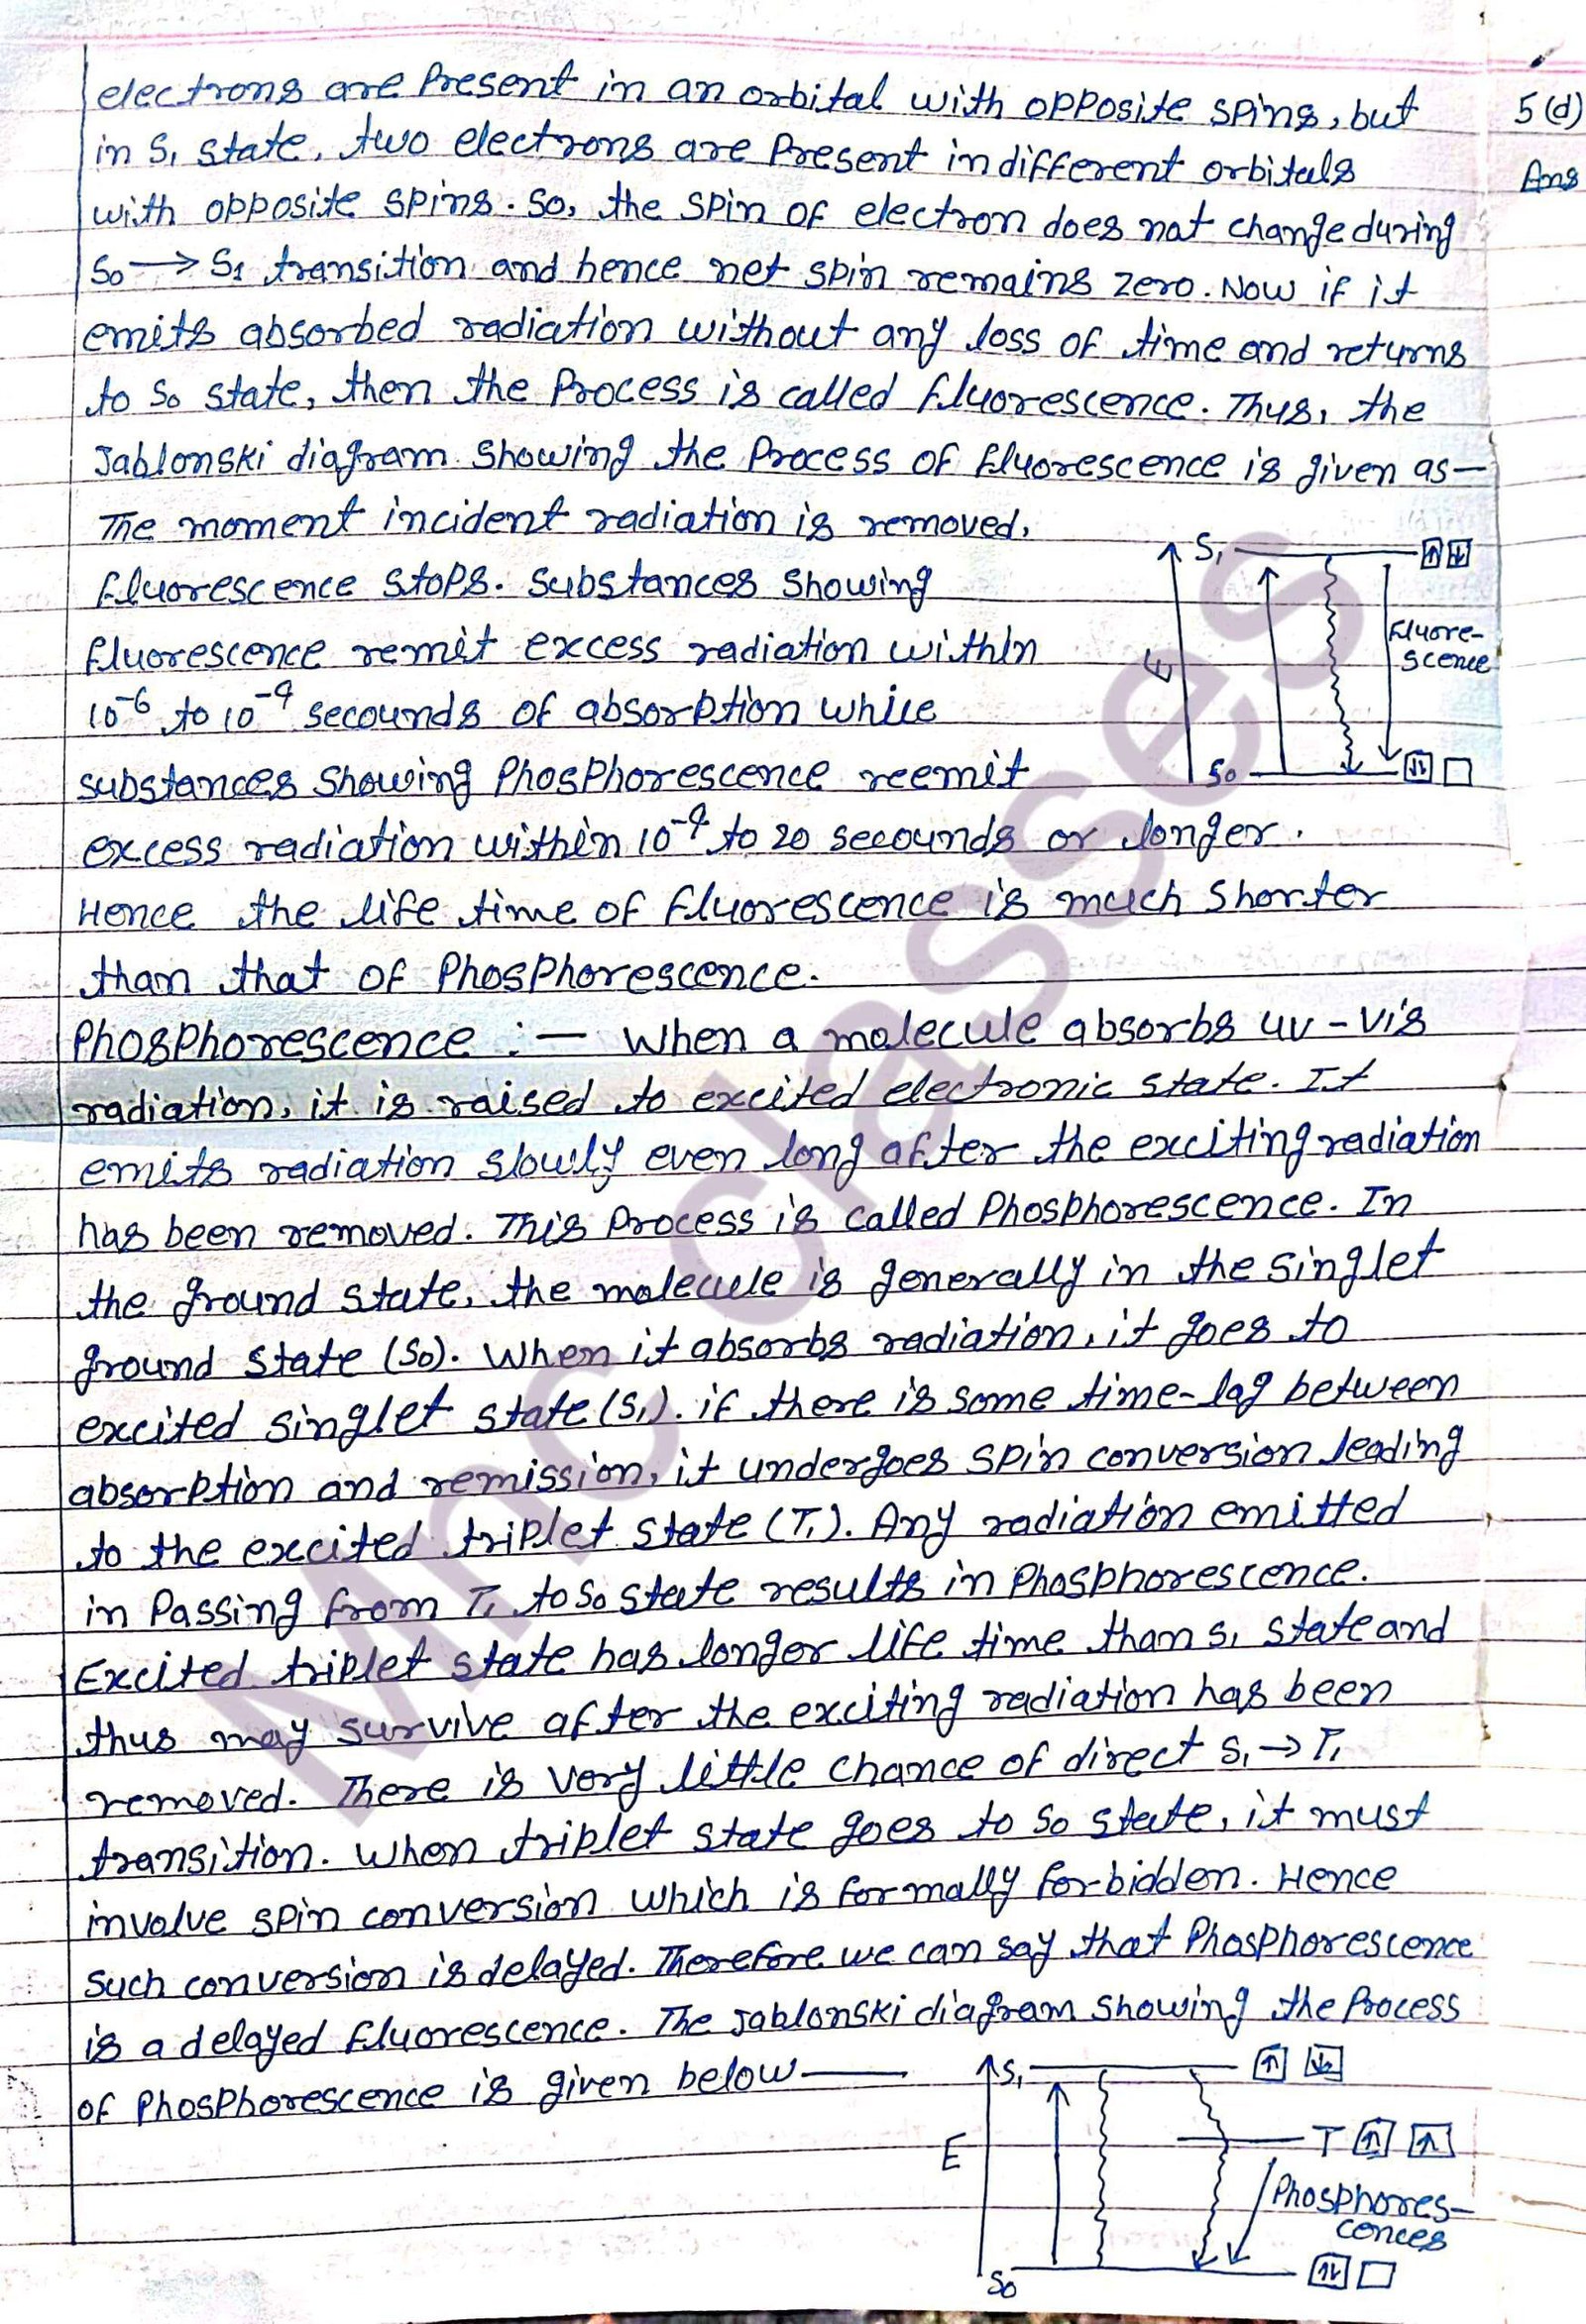 electrons are Present in an orbital with opposite spins, but
in S₁ state, two electrons are Present in different orbitals
with opposite spins. So, the spin of electron does not change during
S₀ → S₁ transition and hence net spin remains zero. Now if it
emits absorbed radiation without any loss of time and returns
to S₀ state, then the Process is called fluorescence. Thus, the
Jablonski diagram showing the Process of fluorescence is given as—
The moment incident radiation is removed,
fluorescence stops. Substances showing
fluorescence remit excess radiation within
10⁻⁶ to 10⁻⁹ secounds of absorption while
substances showing Phosphorescence reemit
excess radiation within 10⁻⁹ to 20 secounds or longer.
Hence the life time of fluorescence is much shorter
than that of Phosphorescence.
S₁ ↑ ↓
E
Fluore-
scence
S₀ ↑↓
Phosphorescence :— When a molecule absorbs uv-vis
radiation, it is raised to excited electronic state. It
emits radiation slowly even long after the exciting radiation
has been removed. This Process is called Phosphorescence. In
the ground state, the molecule is generally in the singlet
ground state (S₀). When it absorbs radiation, it goes to
excited singlet state (S₁). if there is some time-lag between
absorption and remission, it undergoes spin conversion leading
to the excited triplet state (T₁). Any radiation emitted
in Passing from T₁ to S₀ state results in Phosphorescence.
Excited triplet state has longer life time than S₁ state and
thus may survive after the exciting radiation has been
removed. There is very little chance of direct S₁ → T₁
transition. When triplet state goes to S₀ state, it must
involve spin conversion which is formally forbidden. Hence
such conversion is delayed. Therefore we can say that Phosphorescence
is a delayed fluorescence. The Jablonski diagram showing the Process
of Phosphorescence is given below—
S₁ ↑ ↓
E
T ↑ ↑
Phosphores-
cences
S₀ ↑↓
5 (d)
Ans
Mnc classes